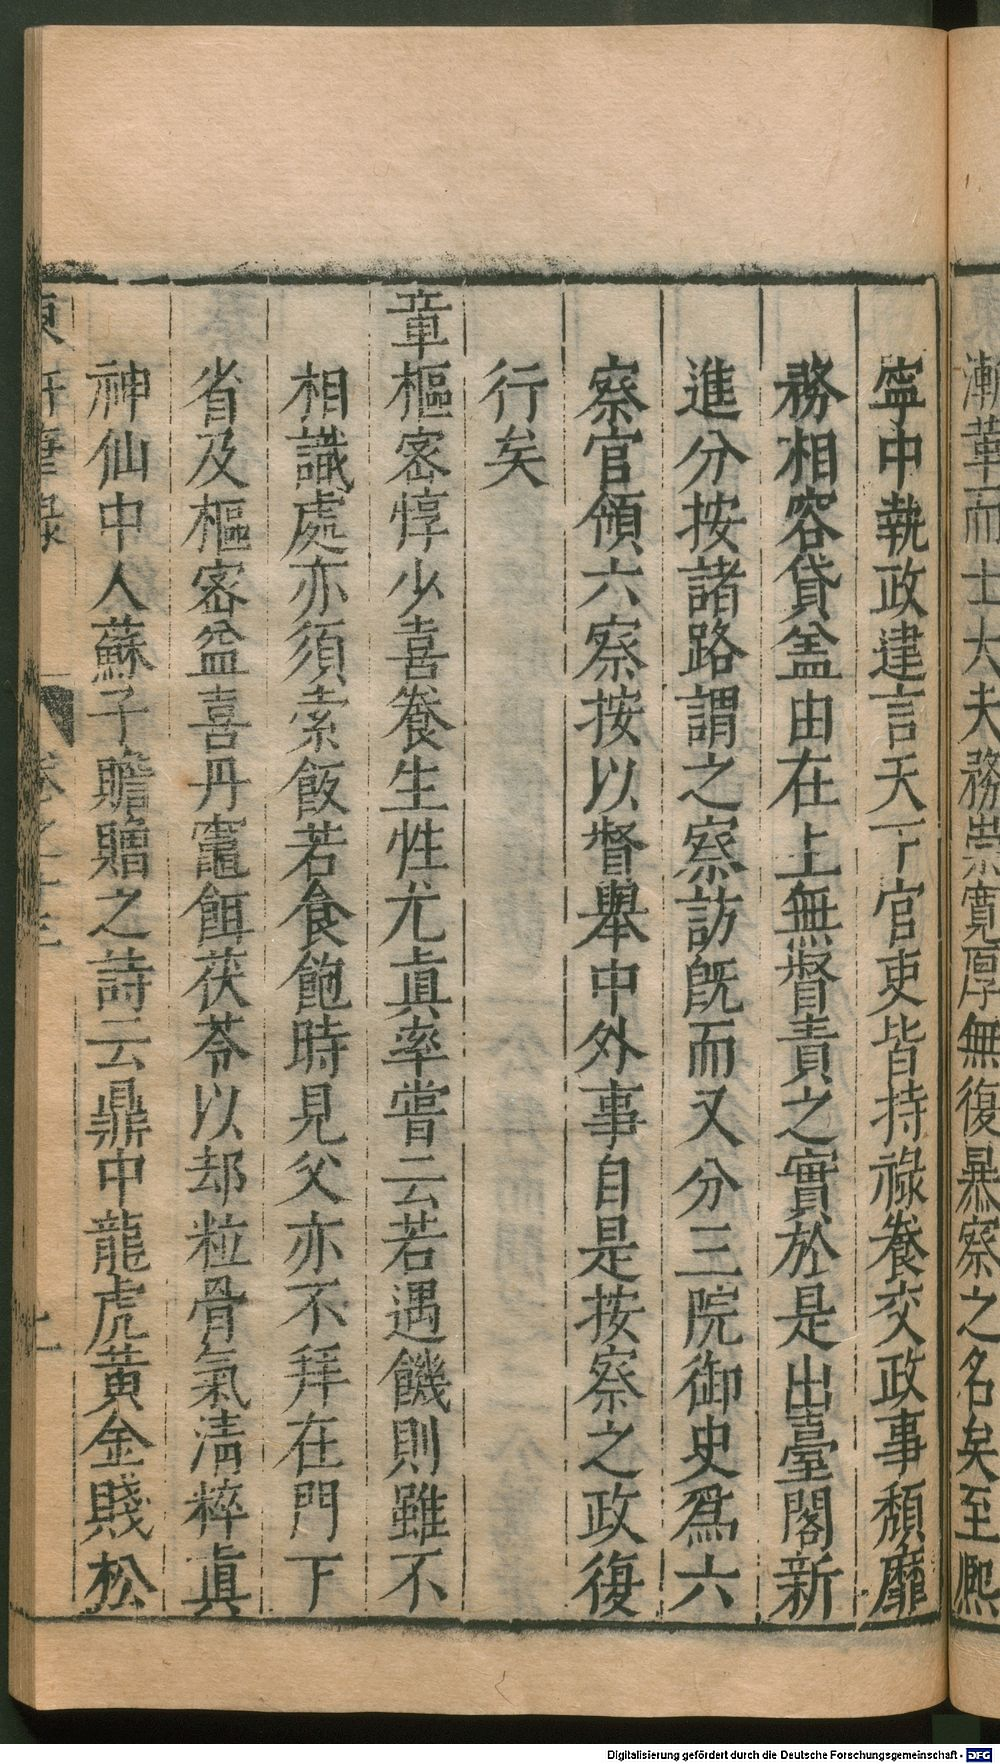 漸革而士大夫務崇寬厚無復暴察之名矣至熈
寧中執政建言天下官吏皆持祿養交政事頹靡
務相容貸盖由在上無督責之實於是出臺閣新
進分按諸路謂之察訪既而又分三院御史爲六
察官領六察按以督舉中外事自是按察之政復
行矣
章樞密惇少喜養生性尤眞率嘗云若遇饑則雖不
相識處亦須索飯若食飽時見父亦不拜在門下
省及樞密益喜丹竈餌茯苓以却粒骨氣清粹眞
神仙中人蘇子瞻贈之詩云鼎中龍虎黃金賤松
東軒筆錄 卷之十三
Digitalisierung gefördert durch die Deutsche Forschungsgemeinschaft - DFG